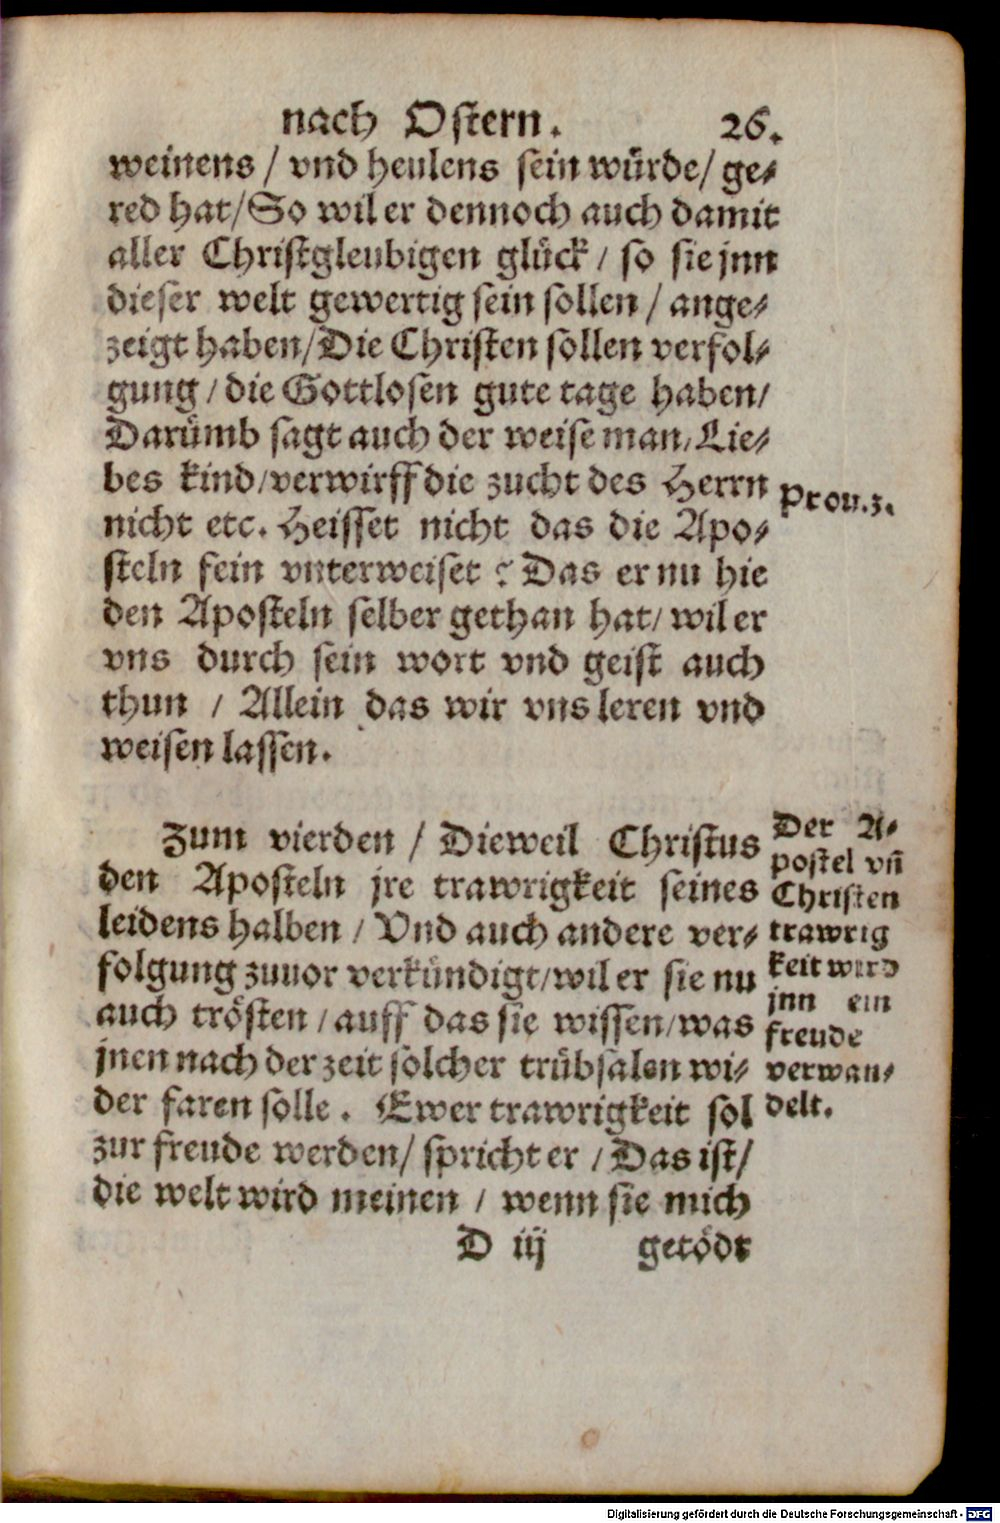 nach Ostern. 26.
weinens / vnd heulens sein würde / ge-
red hat / So wil er dennoch auch damit
aller Christgleubigen glück / so sie jnn
dieser welt gewertig sein sollen / ange-
zeigt haben / Die Christen sollen verfol-
gung / die Gottlosen gute tage haben /
Darümb sagt auch der weise man / Lie-
bes kind / verwirff die zucht des Herrn
nicht etc. Heisset nicht das die Apo-
steln fein vnterweiset ? Das er nu hie
den Aposteln selber gethan hat / wil er
vns durch sein wort vnd geist auch
thun / Allein das wir vns leren vnd
weisen lassen.
Prou. 3.
Zum vierden / Dieweil Christus
den Aposteln jre trawrigkeit seines
leidens halben / Vnd auch andere ver-
folgung zuuor verkündigt / wil er sie nu
auch trösten / auff das sie wissen / was
jnen nach der zeit solcher trübsalen wi-
der faren solle. Ewer trawrigkeit sol
zur freude werden / spricht er / Das ist /
die welt wird meinen / wenn sie mich
Der A-
postel vñ
Christen
trawrig
keit wird
jnn ein
freude
verwan-
delt.
D iij getödt
Digitalisierung gefördert durch die Deutsche Forschungsgemeinschaft - DFG